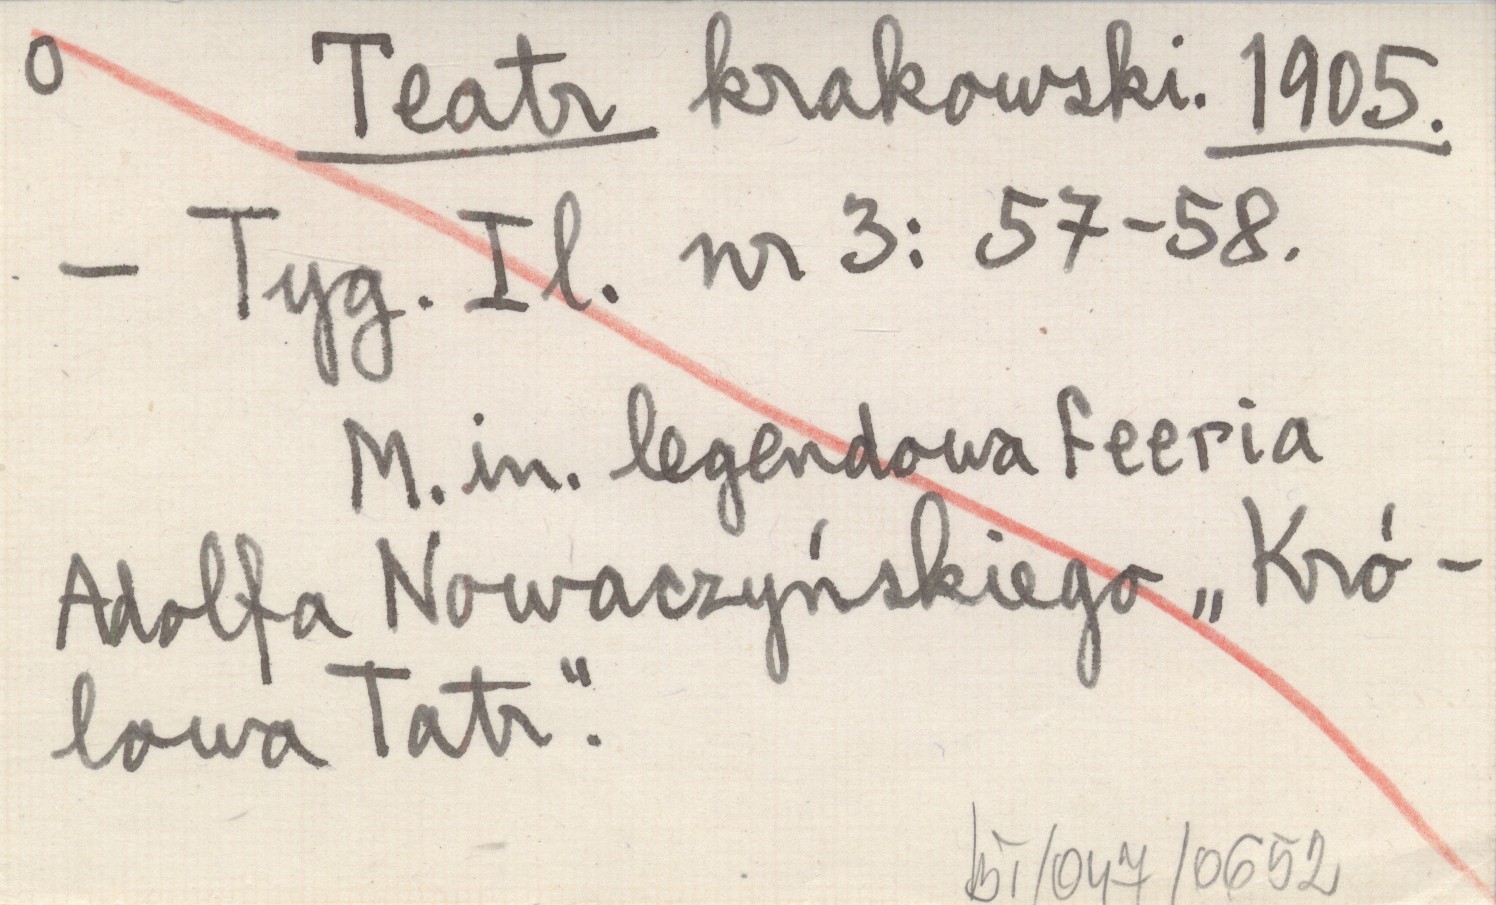 o Teatr krakowski. 1905.
– Tyg. Il. nr 3: 57-58.
M. in. legendowa feeria
Adolfa Nowaczyńskiego „Kró-
lowa Tatr".
bi/047/0652